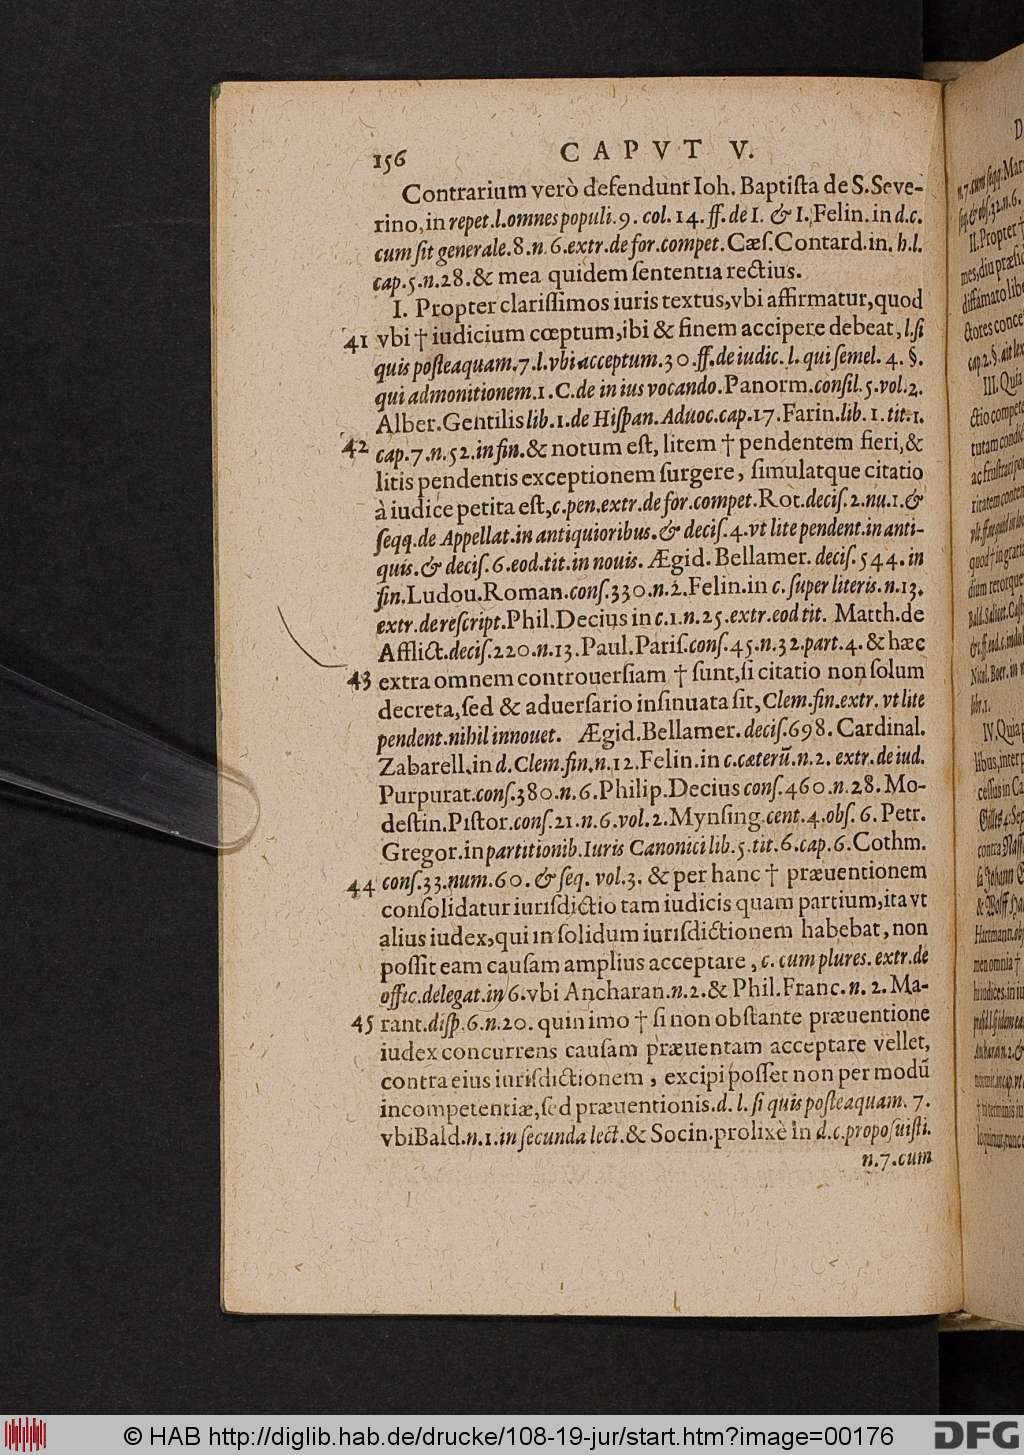 156 CAPVT V.
Contrarium verò defendunt Ioh. Baptiſta de S. Seve-
rino, in repet. l. omnes populi. 9. col. 14. ff. de I. & I. Felin. in d.c.
cum ſit generale. 8. n. 6. extr. de for. compet. Cæſ. Contard. in. h.l.
cap. 5. n. 28. & mea quidem ſententia rectius.
I. Propter clariſſimos iuris textus, vbi affirmatur, quod
41 vbi † iudicium cœptum, ibi & finem accipere debeat, l. ſi
quis poſteaquam. 7. l. vbi acceptum. 30. ff. de iudic. l. qui ſemel. 4. §.
qui admonitionem. 1. C. de in ius vocando. Panorm. conſil. 5. vol. 2.
Alber. Gentilis lib. 1. de Hiſpan. Aduoc. cap. 17. Farin. lib. 1. tit. 1.
42 cap. 7. n. 52. in fin. & notum eſt, litem † pendentem fieri, &
litis pendentis exceptionem ſurgere, ſimulatque citatio
à iudice petita eſt, c. pen. extr. de for. compet. Rot. deciſ. 2. nu. 1. &
ſeqq. de Appellat. in antiquioribus. & deciſ. 4. vt lite pendent. in anti-
quis. & deciſ. 6. eod. tit. in nouis. Ægid. Bellamer. deciſ. 544. in
fin. Ludou. Roman. conſ. 330. n. 2. Felin. in c. ſuper literis. n. 13.
extr. de reſcript. Phil. Decius in c. 1. n. 25. extr. eod tit. Matth. de
Afflict. deciſ. 220. n. 13. Paul. Pariſ. conſ. 45. n. 32. part. 4. & hæc
43 extra omnem controuerſiam † ſunt, ſi citatio non ſolum
decreta, ſed & aduerſario inſinuata ſit, Clem. fin. extr. vt lite
pendent. nihil innouet. Ægid. Bellamer. deciſ. 698. Cardinal.
Zabarell. in d. Clem. fin. n. 12. Felin. in c. cæterũ. n. 2. extr. de iud.
Purpurat. conſ. 380. n. 6. Philip. Decius conſ. 460. n. 28. Mo-
deſtin. Piſtor. conſ. 21. n. 6. vol. 2. Mynſing. cent. 4. obſ. 6. Petr.
Gregor. in partitionib. Iuris Canonici lib. 5. tit. 6. cap. 6. Cothm.
44 conſ. 33. num. 60. & ſeq. vol. 3. & per hanc † præuentionem
conſolidatur iuriſdictio tam iudicis quam partium, ita vt
alius iudex, qui in ſolidum iuriſdictionem habebat, non
poſſit eam cauſam amplius acceptare, c. cum plures. extr. de
offic. delegat. in 6. vbi Ancharan. n. 2. & Phil. Franc. n. 2. Ma-
45 rant. diſp. 6. n. 20. quin imo † ſi non obſtante præuentione
iudex concurrens cauſam præuentam acceptare vellet,
contra eius iuriſdictionem, excipi poſſet non per modũ
incompetentiæ, ſed præuentionis. d. l. ſi quis poſteaquam. 7.
vbi Bald. n. 1. in ſecunda lect. & Socin. prolixè in d. c. propoſuiſti.
n. 7. cum
© HAB http://diglib.hab.de/drucke/108-19-jur/start.htm?image=00176
DFG